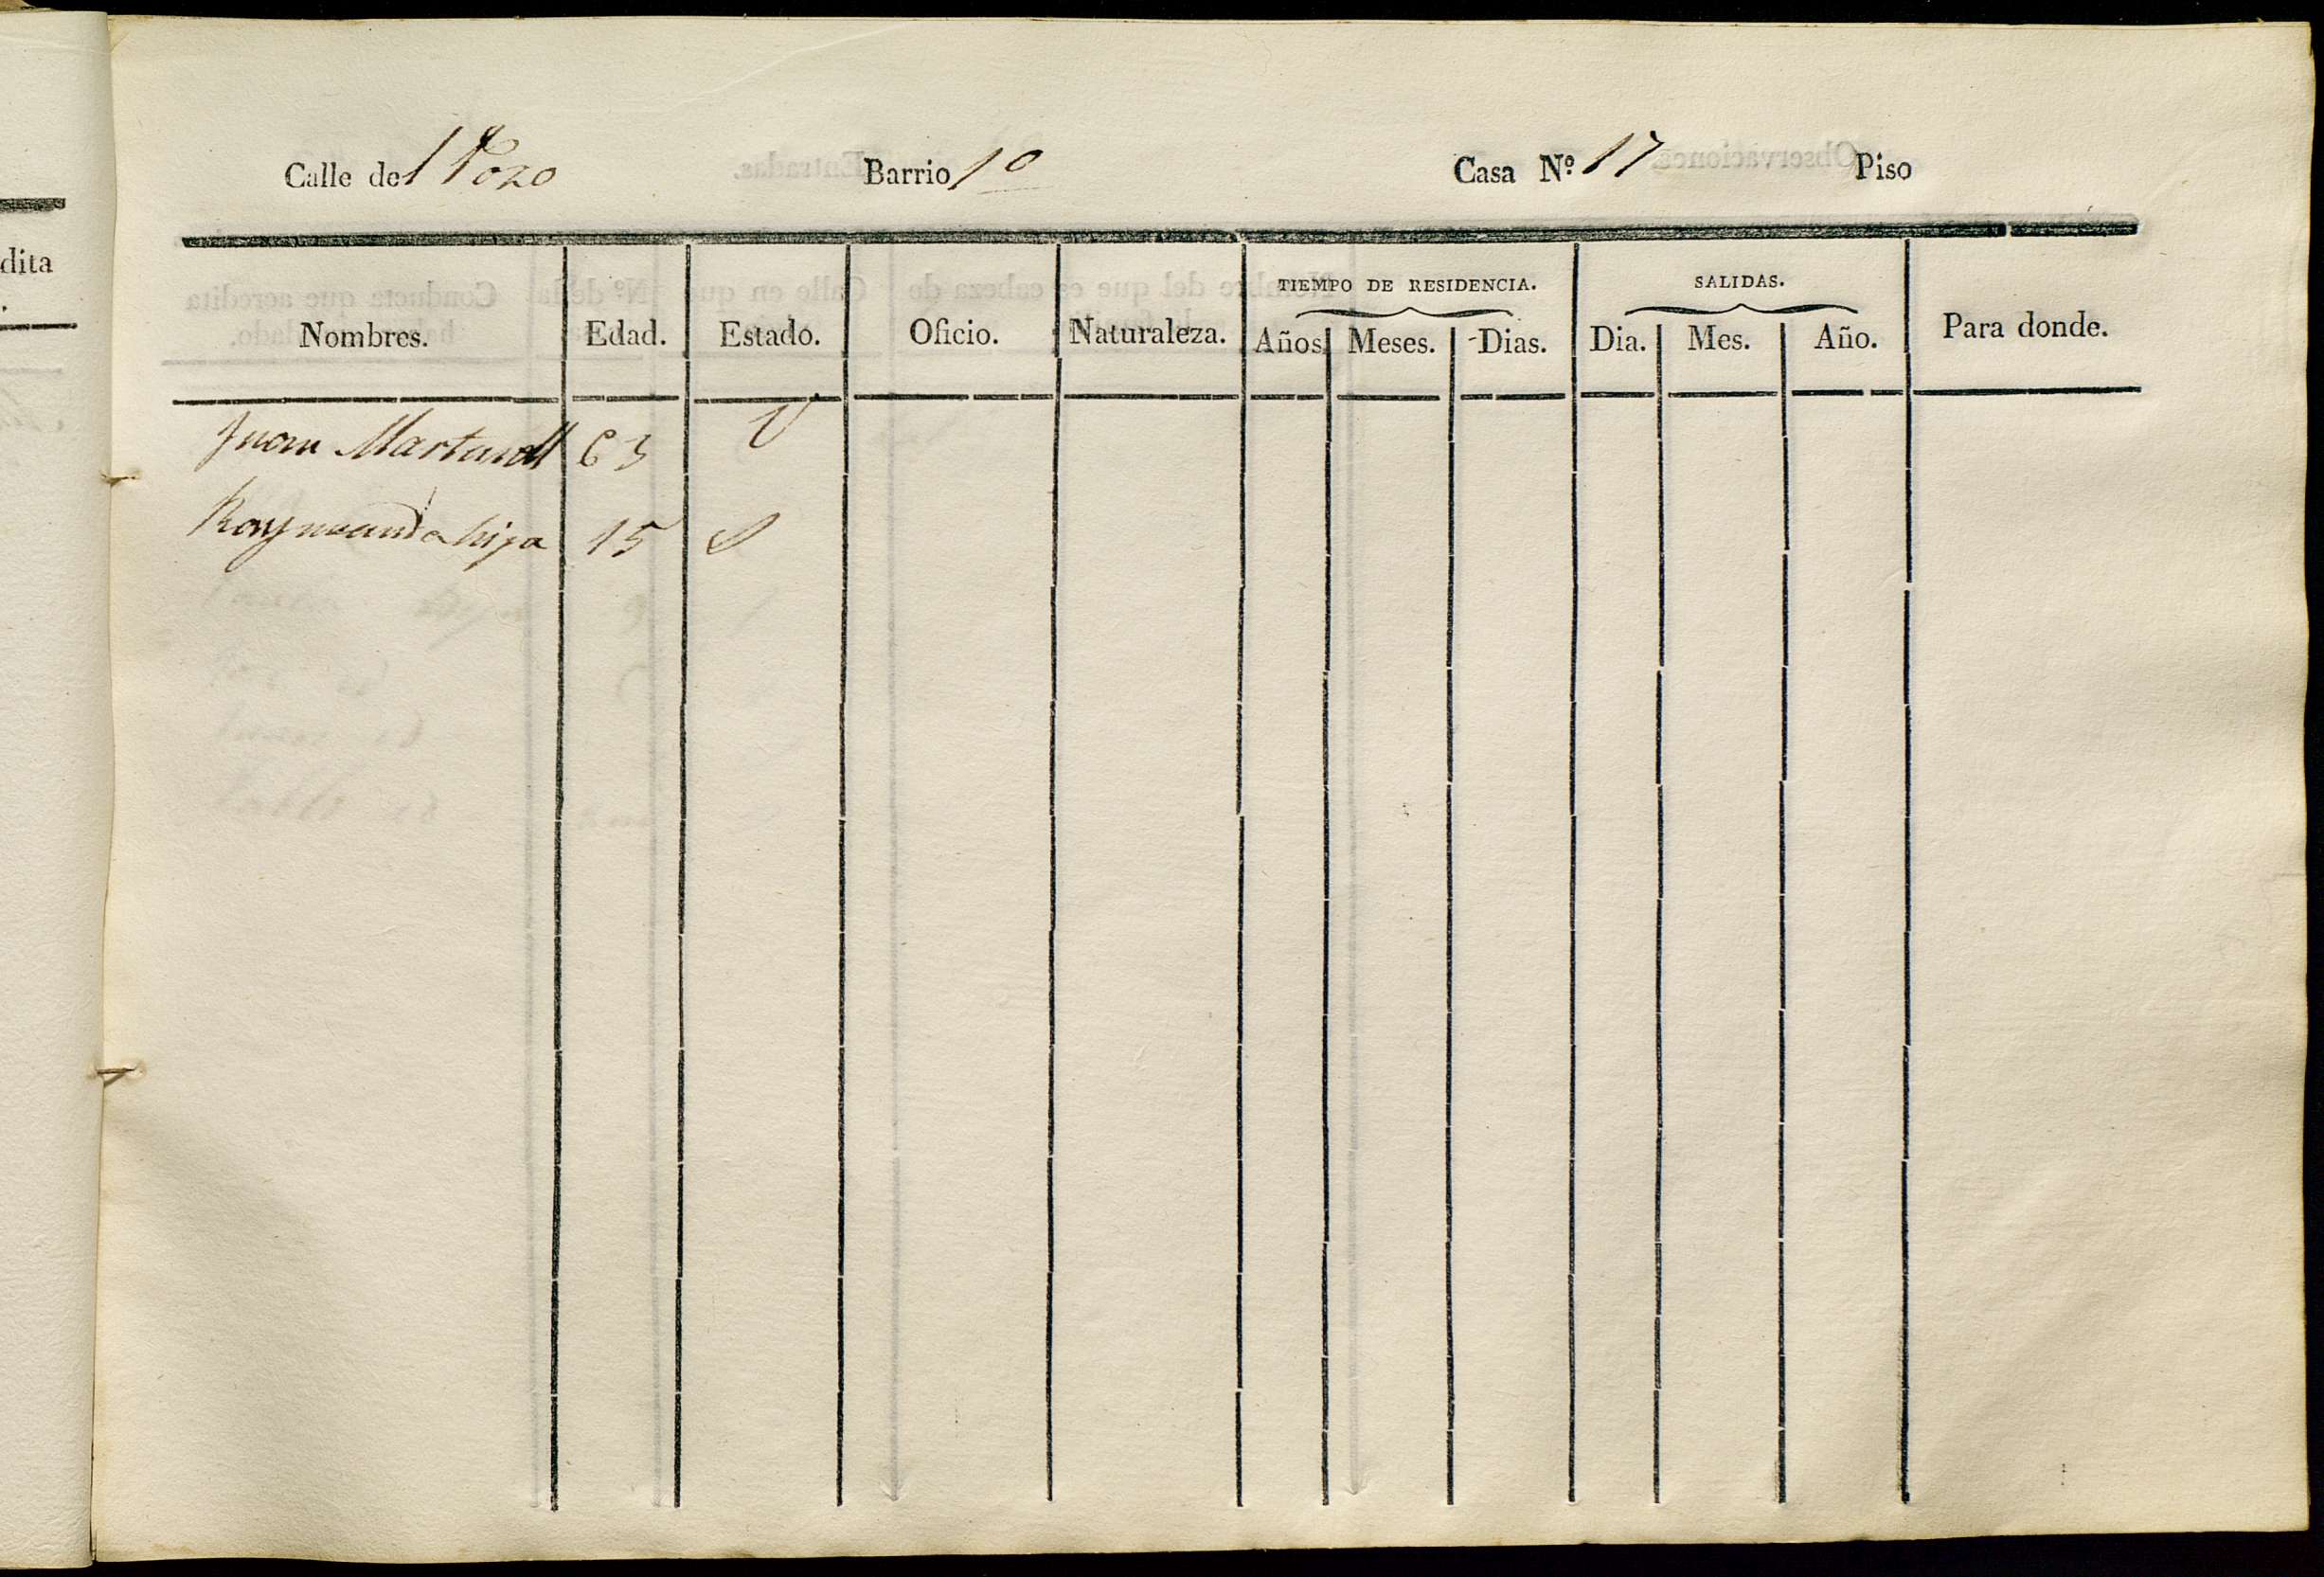 Calle del Pozo Barrio 1º Casa Nº 17 Piso
TIEMPO DE RESIDENCIA. SALIDAS.
Nombres. Edad. Estado. Oficio. Naturaleza. Años Meses. Dias. Dia. Mes. Año. Para donde.
Juan 63 V
Raymunda hija 15 S
dita